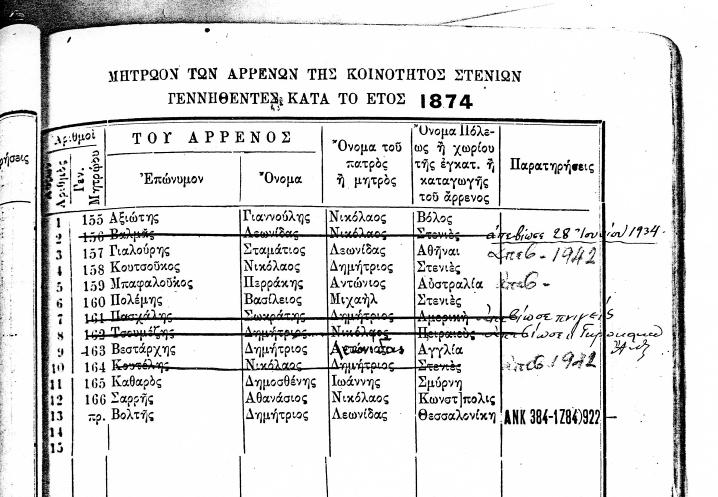 ΜΗΤΡΩΟΝ ΤΩΝ ΑΡΡΕΝΩΝ ΤΗΣ ΚΟΙΝΟΤΗΤΟΣ ΣΤΕΝΙΩΝ
ΓΕΝΝΗΘΕΝΤΕΣ ΚΑΤΑ ΤΟ ΕΤΟΣ 1874
ρήσεις
Ἀριθμοὶ
Ἀριθμὸς
Γεν. Μητρώου
ΤΟΥ ΑΡΡΕΝΟΣ
Ἐπώνυμον
Ὄνομα
Ὄνομα τοῦ πατρὸς ἢ μητρὸς
Ὄνομα Πόλεως ἢ χωρίου τῆς ἐγκατ. ἢ καταγωγῆς τοῦ ἄρρενος
Παρατηρήσεις
1 155 Ἀξιώτης Γιαννούλης Νικόλαος Βόλος
2 156 Βαλμᾶς Λεωνίδας Νικόλαος Στενιὲς ἀπεβίωσε 28 Ἰουνίου 1934
3 157 Γιαλούρης Σταμάτιος Λεωνίδας Ἀθῆναι ἀπεβ- 1942
4 158 Κουτσοῦκος Νικόλαος Δημήτριος Στενιὲς
5 159 Μπαφαλοῦκος Περράκης Ἀντώνιος Αὐστραλία ἀπεβ-
6 160 Πολέμης Βασίλειος Μιχαὴλ Στενιὲς
7 161 Πασχάλης Σωκράτης Δημήτριος Ἀμερικὴ ἀπεβίωσε πνιγείς
8 162 Τσουμέζης Δημήτριος Νικόλαος Πειραιεὺς ἀπεβίωσε
9 163 Βεστάρχης Δημήτριος Λεωνίδας Ἀγγλία
10 164 Κουτέλης Νικόλαος Δημήτριος Στενιὲς ἀπεβ 1942
11 165 Καθαρὸς Δημοσθένης Ἰωάννης Σμύρνη
12 166 Σαρρῆς Ἀθανάσιος Νικόλαος Κωνστ]πολις
13 πρ. Βολτῆς Δημήτριος Λεωνίδας Θεσσαλονίκη ΑΝΚ 384-1784)922
14
15